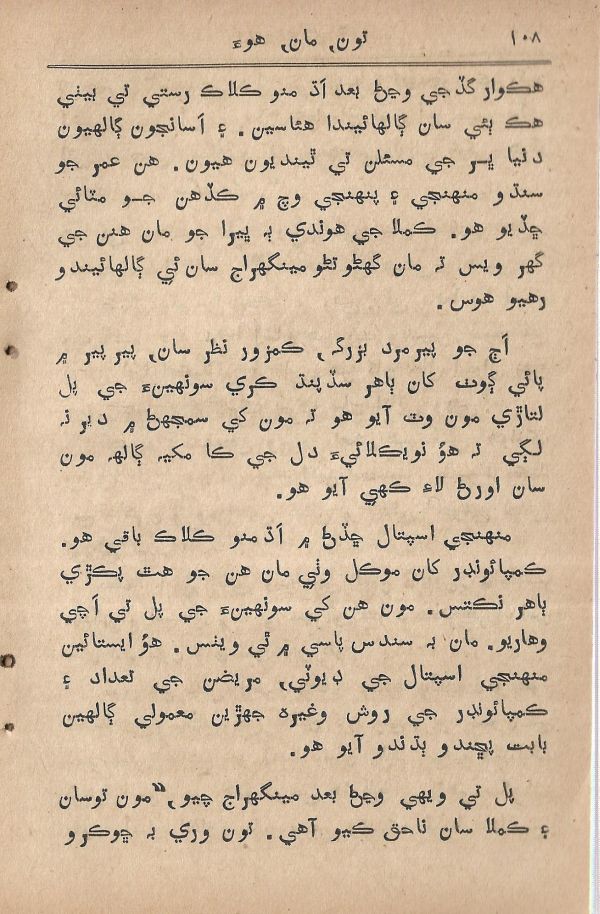 ١٠٨
تون, مان, هوءَ
هڪوار گڏجي وڃڻ بعد اَڌ منو ڪلاڪ رستي تي بيٺي
هڪ ٻئي سان ڳالهائيندا هئاسين. ۽ اَسانجون ڳالهيون
دنيا ڀر جي مسئلن تي ٿينديون هيون. هن عمر جو
سنڌو منهنجي ۽ پنهنجي وچ ۾ ڪڏهن جو مٽائي
ڇڏيو هو. ڪملا جي هوندي ٻه ڀيرا جو مان هنن جي
گهر ويس ته مان گهڻو تڻو مينگهراج سان ئي ڳالهائيندو
رهيو هوس.
اَڄ جو پيرمرد بزرگ, ڪمزور نظر سان, پير پير ۾
پائي ڳوٺ کان ٻاهر سڏپنڌ ڪري سونهين۽ جي پل
لتاڙي مون وٽ آيو هو ته مون کي سمجهڻ ۾ دير نه
لڳي ته هوُ نويڪلائيءَ دل جي ڪا مکيه ڳالهه مون
سان اورڻ لاءِ ڪهي آيو هو.
منهنجي اسپتال ڇڏڻ ۾ اَڌ منو ڪلاڪ باقي هو.
ڪمپائونڊر کان موڪل وٺي مان هن جو هٿ پڪڙي
ٻاهر نڪتس. مون هن کي سونهين۽ جي پل تي اَچي
وهاريو. مان به سندس پاسي ۾ ئي ويٺس. هوُ ايستائين
منهنجي اسپتال جي ڊيوٽي, مريضن جي تعداد ۽
ڪمپائونڊر جي روش وغيره جهڙين معمولي ڳالهين
بابت پڇندو ٻڌندو آيو هو.
پل تي ويهي وڃڻ بعد مينگهراج چيو, ”مون توسان
۽ ڪملا سان ناحق ڪيو آهي. تون وري به ڇوڪرو